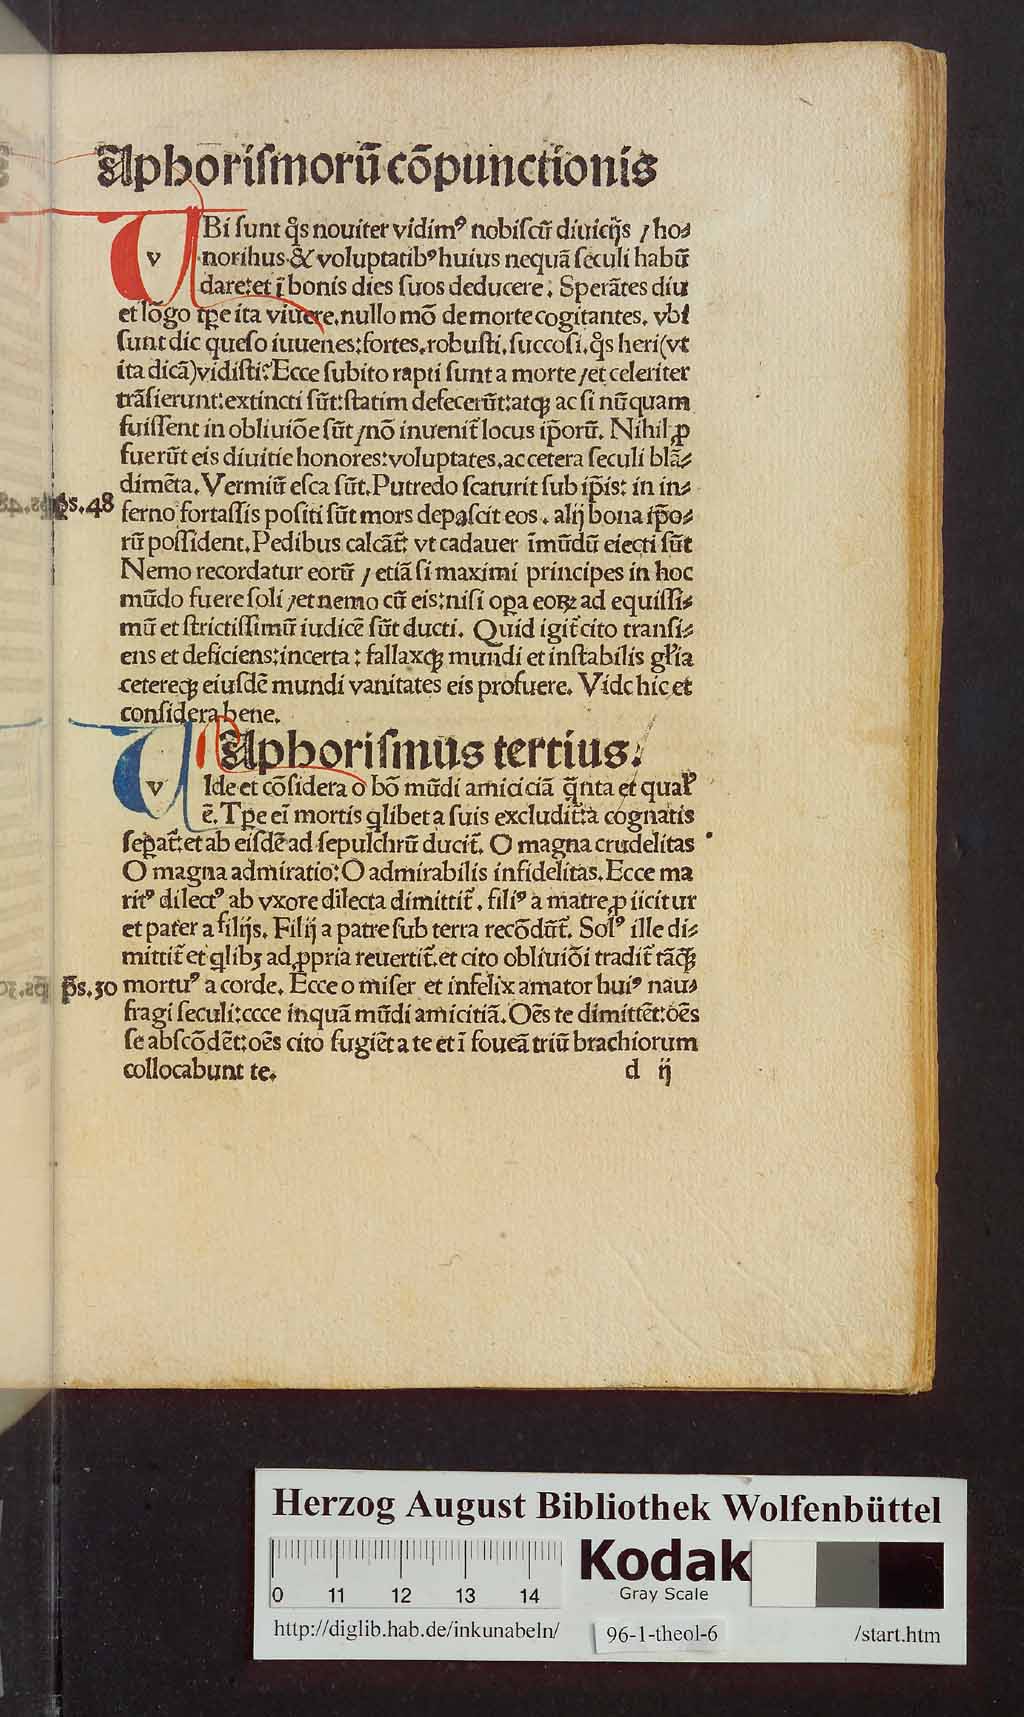 Aphorismorū cōpunctionis
VBi sunt q̄s nouiter vidimꝰ nobiscū diuicijs / ho⸗
norihus & voluptatibꝰ huius nequā seculi habū
dare: et ī bonis dies suos deducere. Sperātes diu
et lōgo tꝑe ita viuere. nullo mō de morte cogitantes. vbi
sunt dic queso iuuenes: fortes. robusti. succosi. q̄s heri (vt
ita dicā) vidisti? Ecce subito rapti sunt a morte / et celeriter
trāsierunt: extincti sūt: statim defecerūt: atqꝫ ac si nūquam
fuissent in obliuiōe sūt / nō inuenit̄ locus ip̄orū. Nihil ꝓ
fuerūt eis diuitie honores: voluptates. ac cetera seculi blā⸗
dimēta. Vermiū esca sūt. Putredo scaturit sub ip̄is: in in⸗
ps. 48
ferno fortassis positi sūt mors depascit eos. alij bona ip̄o⸗
rū possident. Pedibus calcāt̄: vt cadauer īmūdū eiecti sūt
Nemo recordatur eorū / etiā si maximi principes in hoc
mūdo fuere soli / et nemo cū eis: nisi oꝑa eoꝝ ad equissi⸗
mū et strictissimū iudicē sūt ducti. Quid igit̄ cito transi⸗
ens et deficiens: incerta: fallaxqꝫ mundi et instabilis gl̄ia
cetereqꝫ eiusdē mundi vanitates eis profuere. Vide hic et
considera bene.
Aphorismus tertius.
VIde et cōsidera o bō mūdi amiciciā q̄nta et qual̄
ē. Tꝑe eī mortis q̄libet a suis excludit̄: a cognatis
seꝑat̄: et ab eisdē ad sepulchrū ducit̄. O magna crudelitas
O magna admiratio: O admirabilis infidelitas. Ecce ma
ritꝰ dilectꝰ ab vxore dilecta dimittit̄. filiꝰ a matre ꝓiicitur
et pater a filijs. Filij a patre sub terra recōdūt̄. Solꝰ ille di⸗
mittit̄ et q̄libꝫ ad ꝓpria reuertit̄. et cito obliuiōi tradit̄ tāqꝫ
ps. 30
mortuꝰ a corde. Ecce o miser et infelix amator huiꝰ nau⸗
fragi seculi: ecce inquā mūdi amicitiā. Oēs te dimittēt: oēs
se abscōdēt: oēs cito fugiēt a te et ī foueā triū brachiorum
collocabunt te.
d ij
Herzog August Bibliothek Wolfenbüttel
0 11 12 13 14
Kodak
Gray Scale
http://diglib.hab.de/inkunabeln/ 96-1-theol-6 /start.htm